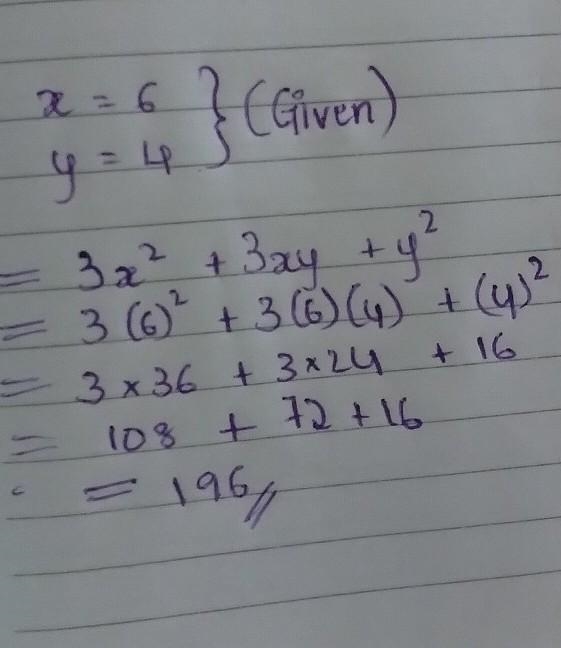 x = 6 } (Given)
y = 4
= 3x² + 3xy + y²
= 3(6)² + 3(6)(4) + (4)²
= 3 × 36 + 3×24 + 16
= 108 + 72 + 16
= 196//